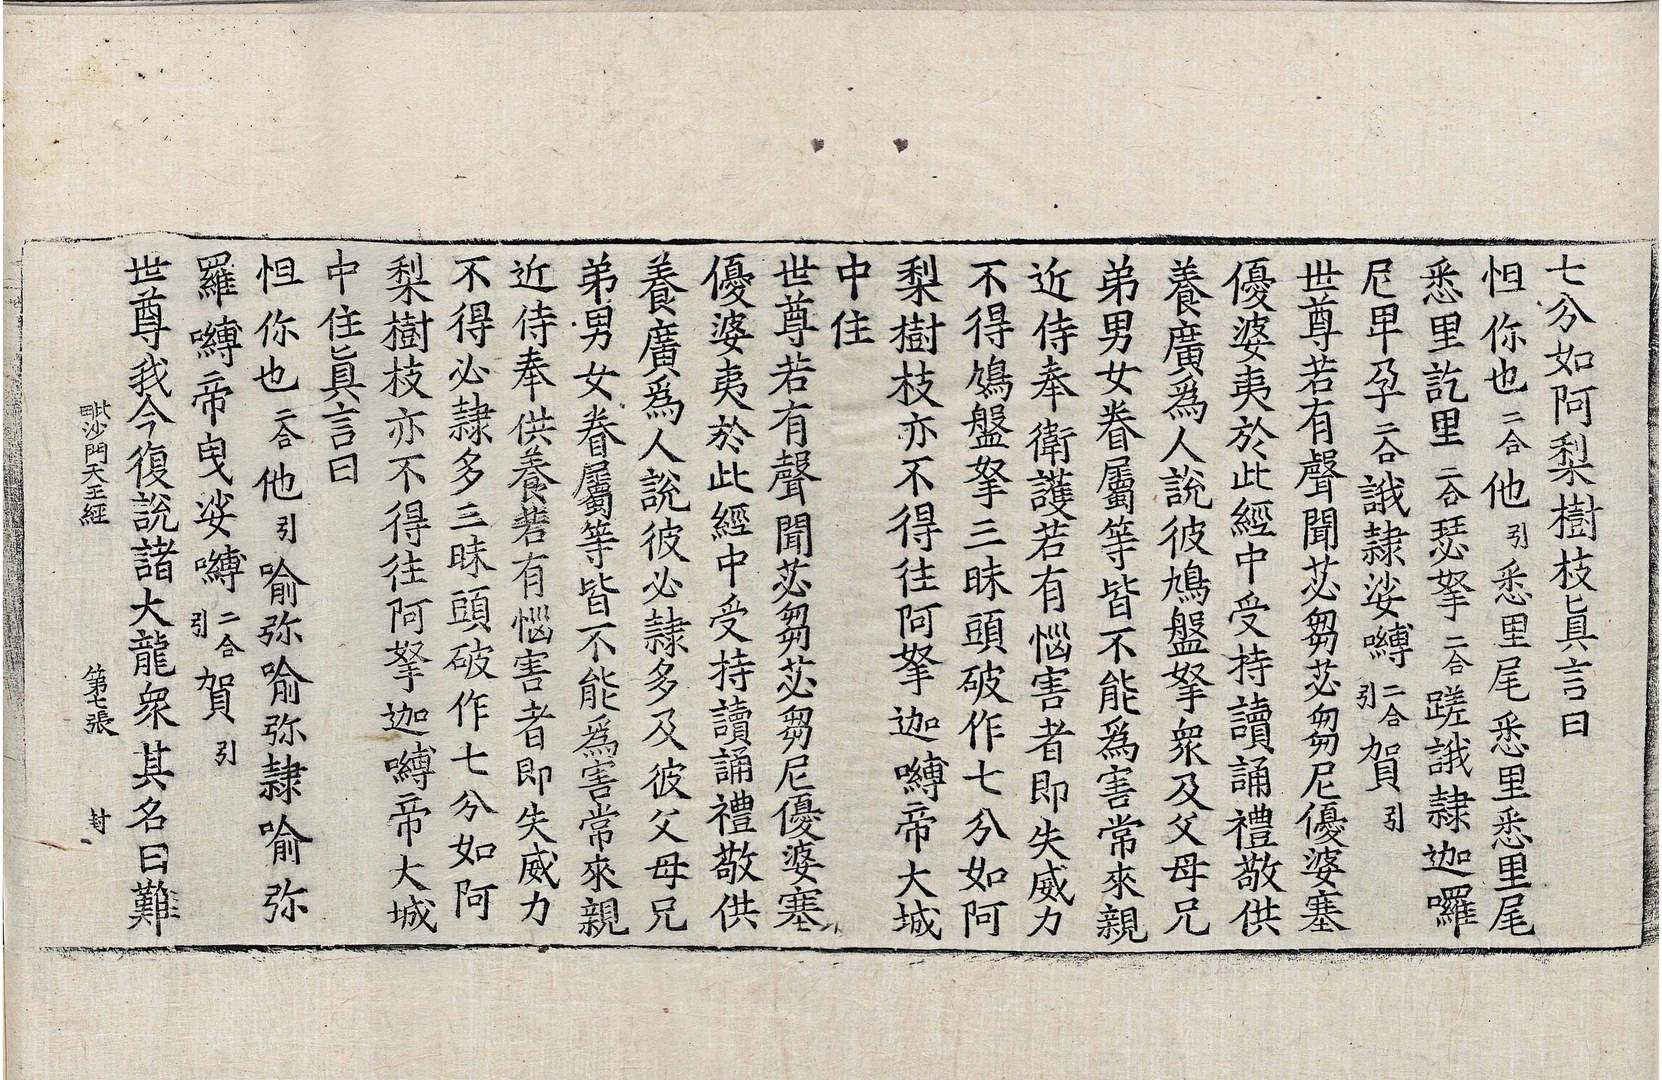 七分如阿梨樹枝眞言曰
怛你也二合他引悉里尾悉里悉里尾
悉里訖里二合瑟拏二合蹉誐隷迦囉
尼卑孕二合誐隷娑嚩二合引賀引
世尊若有聲聞苾芻苾芻尼優婆塞
優婆夷於此經中受持讀誦禮敬供
養廣爲人說彼鳩盤拏衆及父母兄
弟男女眷屬等皆不能爲害常來親
近侍奉衛護若有惱害者即失威力
不得鳩盤拏三昧頭破作七分如阿
梨樹枝亦不得往阿拏迦嚩帝大城
中住
世尊若有聲聞苾芻苾芻尼優婆塞
優婆夷於此經中受持讀誦禮敬供
養廣爲人說彼必隷多及彼父母兄
弟男女眷屬等皆不能爲害常來親
近侍奉供養若有惱害者即失威力
不得必隷多三昧頭破作七分如阿
梨樹枝亦不得往阿拏迦嚩帝大城
中住眞言曰
怛你也二合他引喻弥喻弥隷喻弥
羅嚩帝曳娑嚩二合引賀引
世尊我今復說諸大龍衆其名曰難
毗沙門天王經 第七張 封